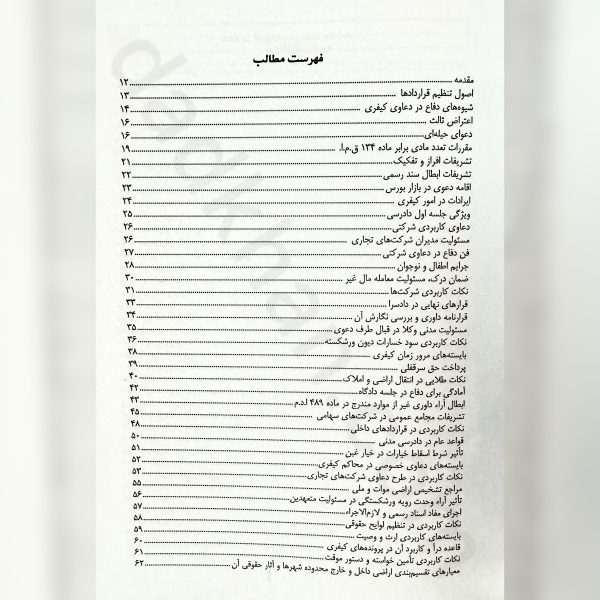 فهرست مطالب
مقدمه ۱۲
اصول تنظیم قراردادها ۱۳
شیوه‌های دفاع در دعاوی کیفری ۱۴
اعتراض ثالث ۱۶
دعوای حیله‌ای ۱۶
مقررات تعدد مادی برابر ماده ۱۳۴ ق.م.ا. ۱۹
تشریفات افراز و تفکیک ۲۱
تشریفات ابطال سند رسمی ۲۲
اقامه دعوی در بازار بورس ۲۳
ایرادات در امور کیفری ۲۴
ویژگی جلسه اول دادرسی ۲۵
دعاوی کاربردی شرکتی ۲۶
مسئولیت مدیران شرکت‌های تجاری ۲۶
فن دفاع در دعاوی شرکتی ۲۷
جرایم اطفال و نوجوان ۲۸
ضمان درک، مسئولیت معامله مال غیر ۳۰
نکات کاربردی شرکت‌ها ۳۱
قرارهای نهایی در دادسرا ۳۳
قرارنامه داوری و بررسی نگارش آن ۳۴
مسئولیت مدنی وکلا در قبال طرف دعوی ۳۵
نکات کاربردی سود خسارات دیون ورشکسته ۳۶
بایسته‌های مرور زمان کیفری ۳۸
پرداخت حق سرقفلی ۳۹
نکات طلایی در انتقال اراضی و املاک ۴۰
آمادگی برای دفاع در جلسه دادگاه ۴۲
ابطال آراء داوری غیر از موارد مندرج در ماده ۴۸۹ ا.د.م ۴۳
تشریفات مجامع عمومی در شرکت‌های سهامی ۴۵
نکات کاربردی در قراردادهای داخلی ۴۸
قواعد عام در دادرسی مدنی ۵۰
تأثیر شرط اسقاط خیارات در خیار غبن ۵۱
بایسته‌های دعاوی خصوصی در محاکم کیفری ۵۲
نکات کاربردی در طرح دعاوی شرکت‌های تجاری ۵۳
مراجع تشخیص اراضی موات و ملی ۵۵
تأثیر آراء وحدت رویه ورشکستگی در مسئولیت متعهدین ۵۶
اجرای مفاد اسناد رسمی و لازم‌الاجراء ۵۷
نکات کاربردی در تنظیم لوایح حقوقی ۵۸
بایسته‌های کاربردی ارث و وصیت ۵۹
قاعده درأ و کاربرد آن در پرونده‌های کیفری ۶۰
نکات کاربردی تأمین خواسته و دستور موقت ۶۱
معیارهای تقسیم‌بندی اراضی داخل و خارج محدوده شهرها و آثار حقوقی آن ۶۲
dadkhah